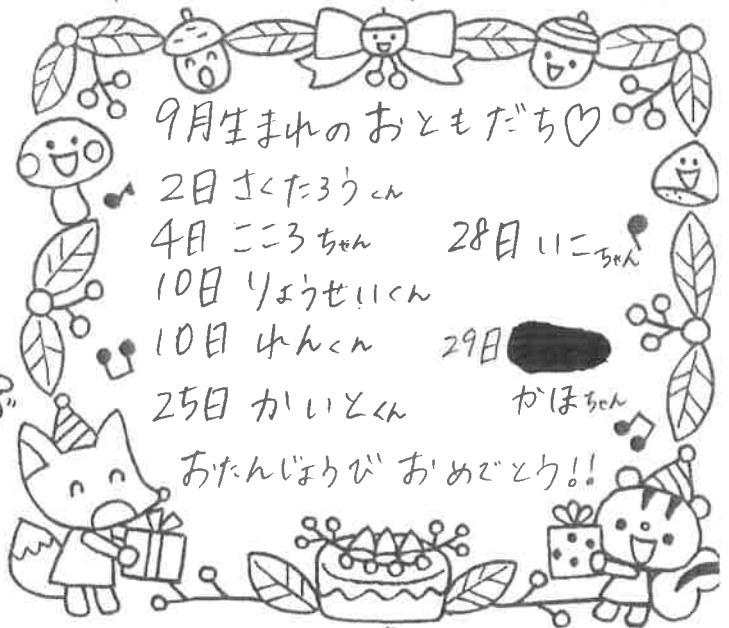 9月生まれのおともだち♡
2日 さくたろうくん
4日 こころちゃん
10日 りょうせいくん
10日 れんくん
25日 かいとくん
28日 いこちゃん
29日
かほちゃん
おたんじょうび おめでとう!!